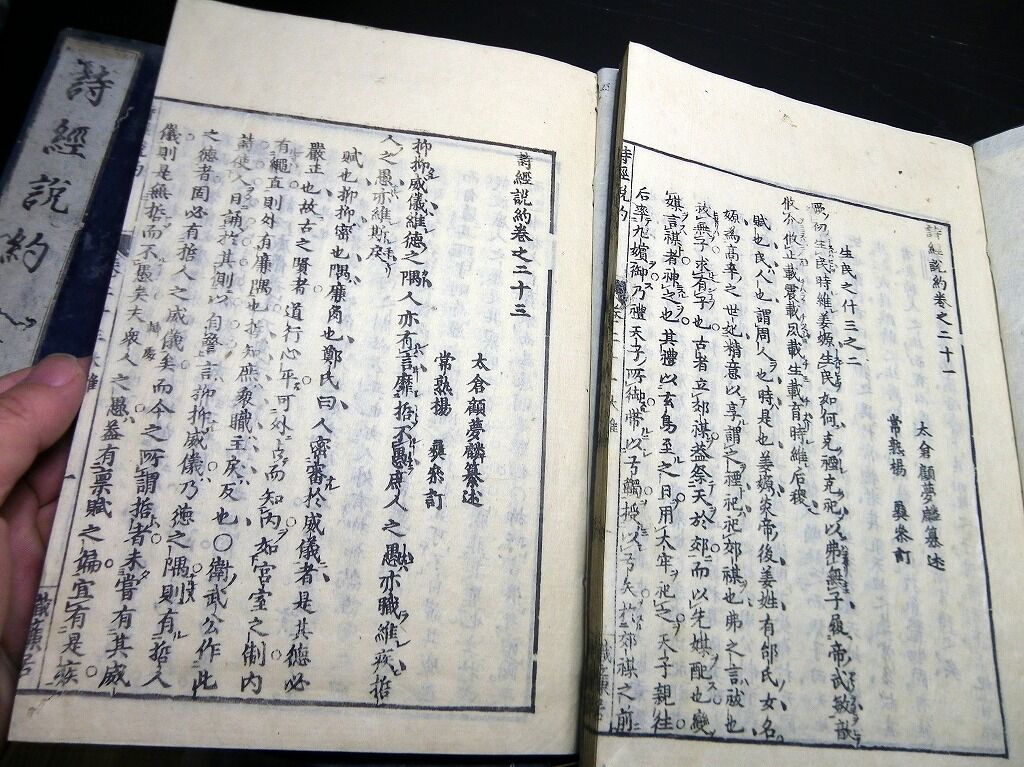 詩經說約
詩經說約卷之二十一
太倉顧夢麟纂述
常熟楊彝參訂
生民之什三之二
厥初生民時維姜嫄生民如何克禋克祀以弗無子履帝武敏歆
攸介攸止載震載夙載生載育時維后稷
賦也民人也謂周人也時是也姜嫄炎帝後姜姓有邰氏女名
嫄為高辛之世妃精意以享謂之禋祀祀郊禖也弗之言祓也
祓無子求有子也古者立郊禖蓋祭天於郊而以先媒配也變
媒言禖者神之也其禮以玄鳥至之日用大牢祀之天子親往
后率九嬪御乃禮天子所御帶以弓韣授以弓矢於郊禖之前
詩經說約
詩經說約卷之二十三
太倉顧夢麟纂述
常熟楊彝參訂
抑抑威儀維德之隅人亦有言靡哲不愚庶人之愚亦職維疾哲
人之愚亦維斯戾
賦也抑抑密也隅廉角也鄭氏曰人密審於威儀者是其德必
嚴正也故古之賢者道行心平可外占而知內如宮室之制內
有繩直則外有廉隅也哲知庶衆職主戾反也○衛武公作此
詩使人日誦於其側以自警言抑抑威儀乃德之隅則有哲人
之德者固必有哲人之威儀矣而今之所謂哲者未嘗有其威
儀則是無哲而不愚矣夫衆人之愚蓋有稟賦之偏宜有是疾